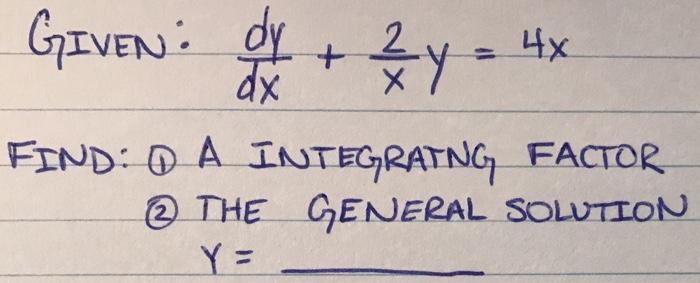 GIVEN: dy/dx + 2/x y = 4x
FIND: ① A INTEGRATNG FACTOR
② THE GENERAL SOLUTION
Y = ________